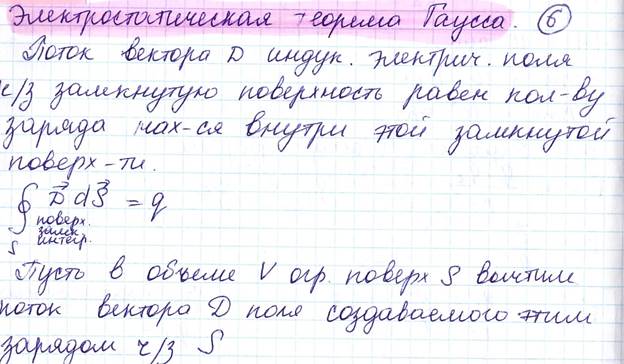 Электростатическая теорема Гаусса. 6
Поток вектора D индук. электрич. поля
ч/з замкнутую поверхность равен кол-ву
заряда нах-ся внутри этой замкнутой
поверх-ти.
∮ D⃗ dS⃗ = q
поверх.
замк.
S интегр.
Пусть в объеме V огр. поверх S
поток вектора D поля создаваемого этим
зарядом ч/з S